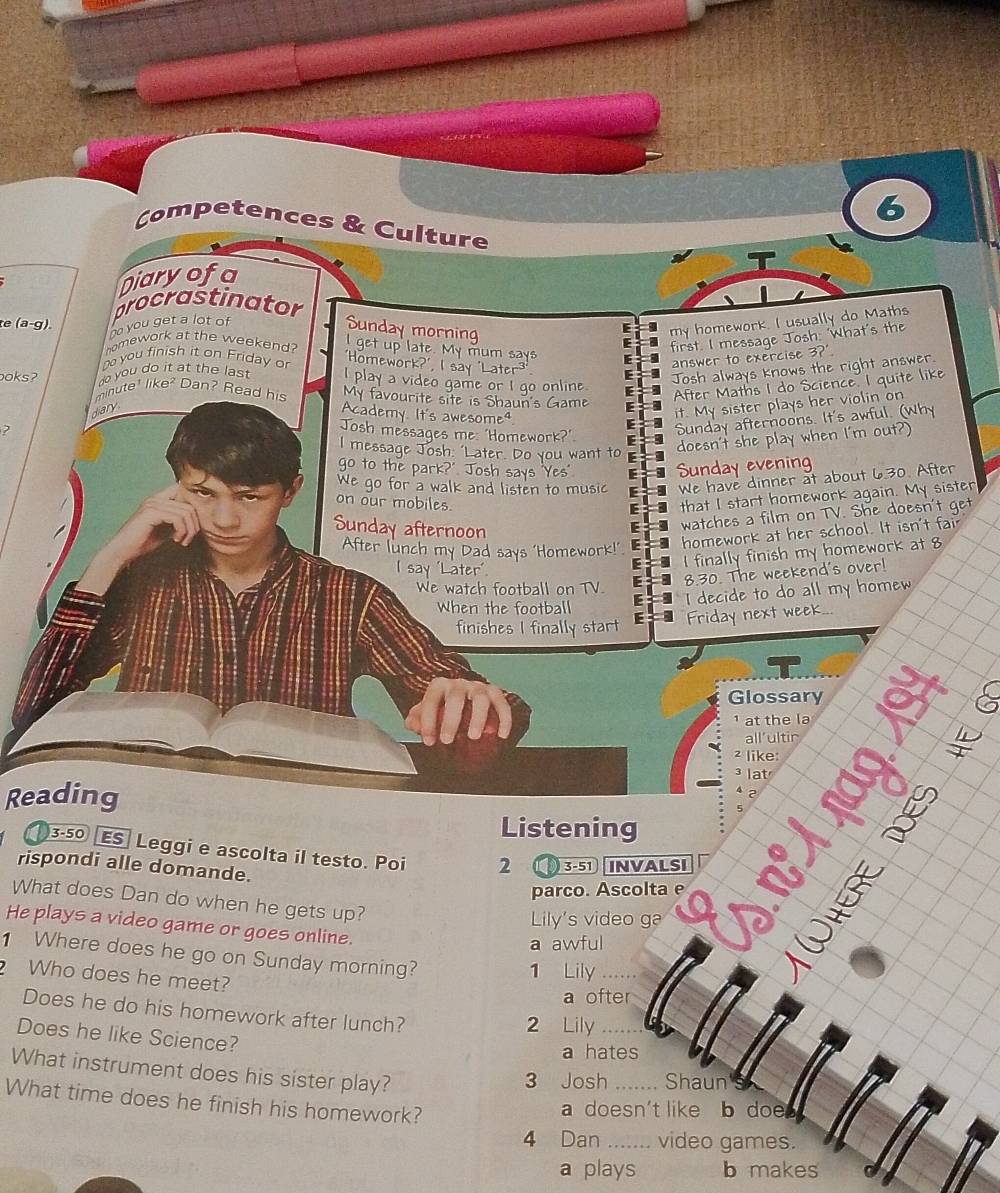 Competences & Culture
6
te (a-g).
ooks?
?
Diary of a
procrastinator
Do you get a lot of
homework at the weekend?
Do you finish it on Friday or
do you do it at the last
minute¹ like² Dan? Read his
diary.
Sunday morning
I get up late. My mum says
'Homework?', I say 'Later³'.
I play a video game or I go online.
My favourite site is Shaun's Game
Academy. It's awesome⁴.
Josh messages me: 'Homework?'.
I message Josh: 'Later. Do you want to
go to the park?'. Josh says 'Yes'.
We go for a walk and listen to music
on our mobiles.
Sunday afternoon
After lunch my Dad says 'Homework!'.
I say 'Later'.
We watch football on TV.
When the football
finishes I finally start
my homework. I usually do Maths
first. I message Josh: 'What's the
answer to exercise 3?'.
Josh always knows the right answer.
After Maths I do Science. I quite like
it. My sister plays her violin on
Sunday afternoons. It's awful. (Why
doesn't she play when I'm out?)
Sunday evening
We have dinner at about 6.30. After
that I start homework again. My sister
watches a film on TV. She doesn't get
homework at her school. It isn't fair
I finally finish my homework at 8
8.30. The weekend's over!
I decide to do all my homew
Friday next week...
Glossary
¹ at the la
all'ultim
² like:
³ lat
4
5
Reading
3-50 ES Leggi e ascolta il testo. Poi
rispondi alle domande.
What does Dan do when he gets up?
He plays a video game or goes online.
1 Where does he go on Sunday morning?
2 Who does he meet?
Does he do his homework after lunch?
Does he like Science?
What instrument does his sister play?
What time does he finish his homework?
Listening
2 3-51 INVALSI
parco. Ascolta e
Lily's video ga
a awful
1 Lily ......
a often
2 Lily .......
a hates
3 Josh ....... Shaun's
a doesn't like b doe
4 Dan ....... video games.
a plays b makes
Es. n° 1 pag. 154
1 WHERE DOES HE GO